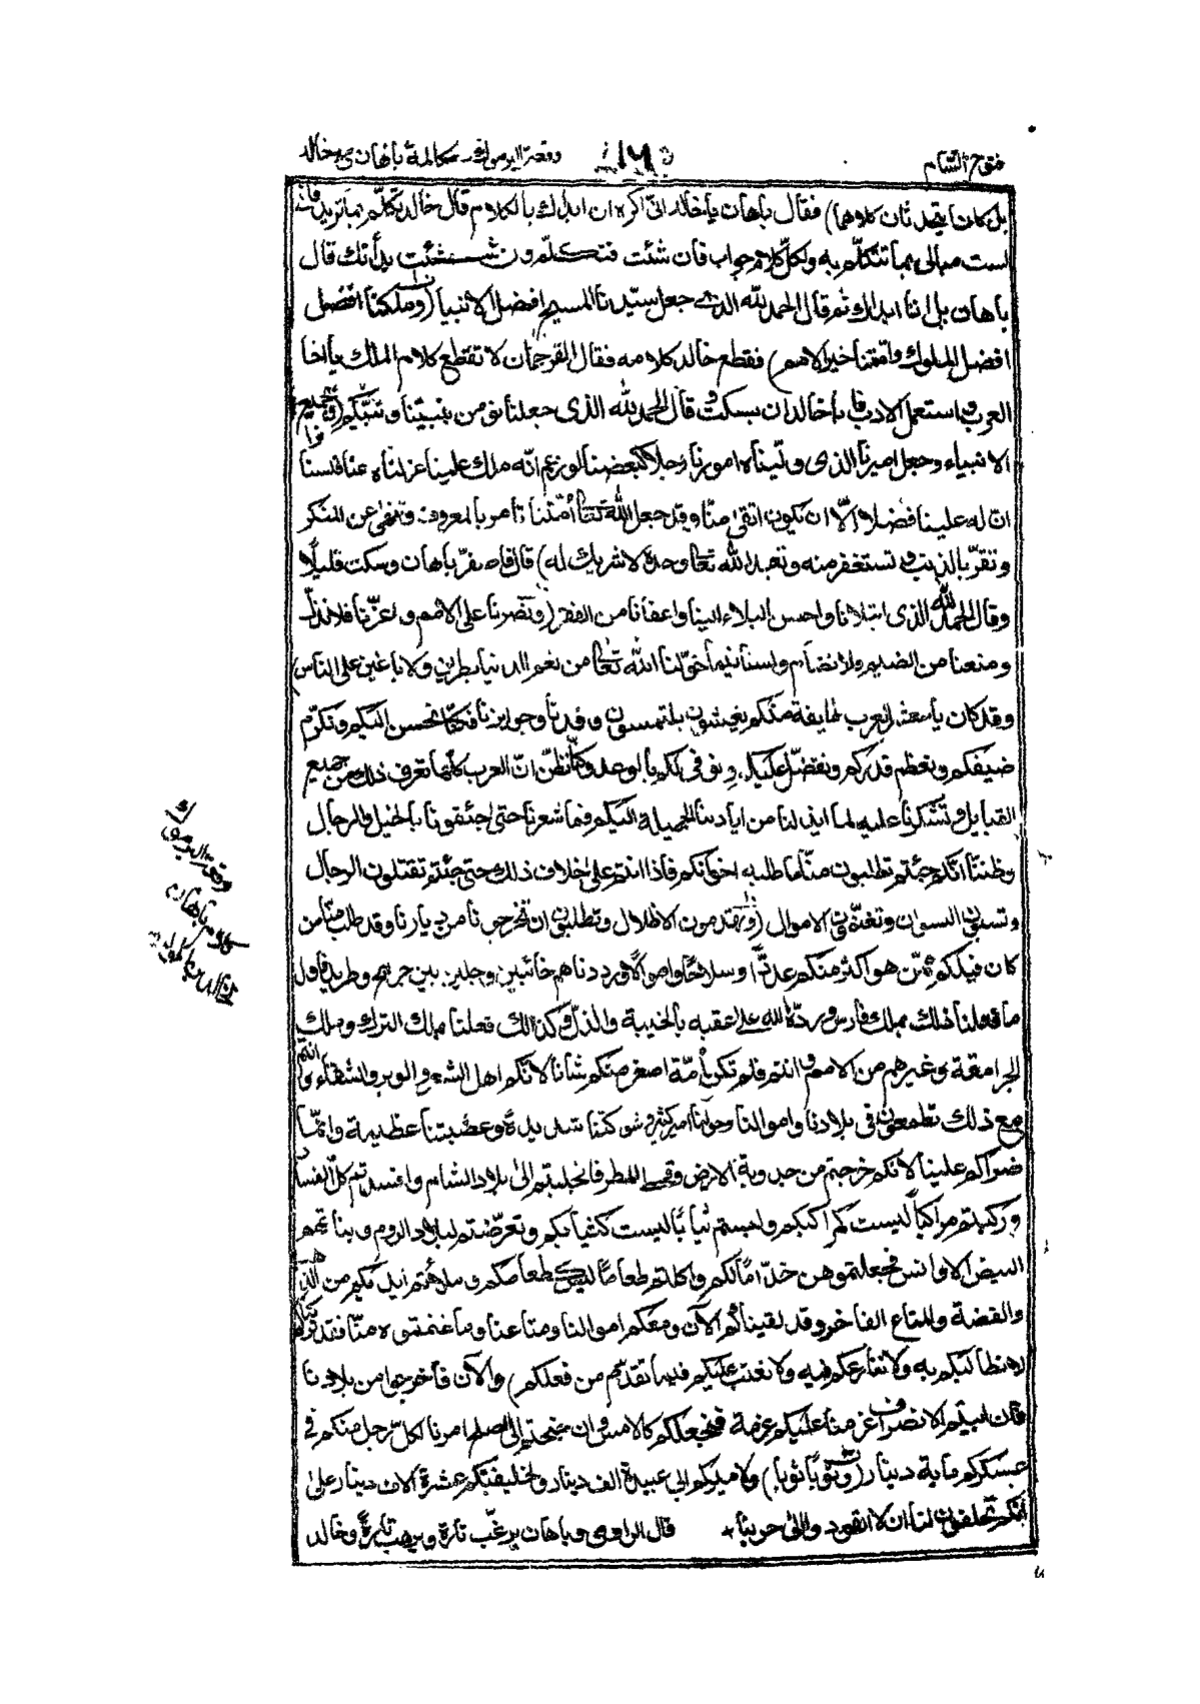 فتوح الشام ١٧٦ وقعة اليرموك مكالمة باهان مع خالد
بل كانا يتحدثان كلاهما) فقال باهان يا خالد انى اكره ان ابدأك بالكلام قال خالد تكلم بما تريد فانى
لست مبالى بما تتكلم به ولكل كلام جواب فان شئت فتكلم وان شئت بدأتك قال
باهان بل انا ابدأك ثم قال الحمد لله الذى جعل سيدنا المسيح افضل الانبياء (وملكنا افضل
افضل الملوك وامّتنا خير الامم) فقطع خالد كلامه فقال الترجمان لا تقطع كلام الملك يا اخا
العرب واستعمل الادب فابى خالد ان يسكت وقال الحمد لله الذى جعلنا نؤمن بنبيّنا ونبيّكم (وجميع
الانبياء وجعل اميرنا الذى ولّيناه امورنا رجلا كبعضنا لو زعم انّه ملك علينا عزلناه عنا فلسنا نرى
ان له علينا فضلا الّا ان يكون اتقى منّا وقد جعل الله تعالى امّتنا تامر بالمعروف وتنهى عن المنكر
وتقرّ بالذنب وتستغفر منه وتعبد الله تعالى وحده لا شريك له) قال فاصفرّ باهان وسكت قليلًا
وقال الحمد لله الذى ابتلانا واحسن البلاء الينا واعفانا من الفقر (ونصرنا على الامم واعزّنا فلا نذلّ
ومنعنا من الضيم ولا نضام ولسنا فيما خوّلنا الله تعالى من نعم الدنيا بطرين ولا باغين على الناس)
وقد كان يا معشر العرب طايفة منكم يغيشون يلتمسون رفدنا وجوايزنا فكنّا نحسن اليكم ونكرم
ضيفكم ونعظم قدركم ونفضّل عليكم، ونوفى لكم بالوعد وكنّا نظنّ انّ العرب كلّها تعرف ذلك من جميع
القبايل وتشكرنا عليه لما ابذلنا من ايادينا الجميلة اليكم فما شعرنا حتى جئتمونا بالخيل والرجال
وظننّا انّكم جئتم تطلبون منّا ما طلبه اخوانكم فاذا انتم على خلاف ذلك حتى جئتم تقتلون الرجال
وتسبون النسوان وتغنمون الاموال (وتهدمون الاطلال وتطلبون ان تخرجونا من ديارنا وقد طلب منّا من
كان قبلكم ممّن هو اكثر منكم عددًا وسلاحًا واموالًا ورددناهم خائبين وجلين بين جريح وطريد فاول
ما فعلنا ذلك بملك فارس وردّه الله على عقبه بالخيبة والذلّ وكذالك فعلنا بملك الترك وملك
الجرامقة وغيرهم من الامم وانتم فلم تكن امّة اصغر منكم شانا لانّكم اهل الشعر والوبر والشقاء وانتم
مع ذلك تطمعون فى بلادنا واموالنا وحولنا امم كثيرة وشوكتنا شديدة وعصبتنا عظيمة وانّما
ضراكم علينا لانكم خرجتم من جدوبة الارض وقحط المطر فانجلبتم الى بلاد الشام وافسدتم كلّ الفساد
وركبتم مراكباً ليست كمراكبكم ولبستم ثياباً ليست كثيابكم وتعرّضتم لبلاد الروم وبناتهم
البيض الاوانس فجعلتموهن خدّامًا لكم واكلتم طعاماً ليس كطعامكم وملأتم ايديكم من الذهب
والفضة والمتاع الفاخر وقد لقيناكم الآن ومعكم اموالنا ومتاعنا وما غنمتموه منّا فقد تركناه
لا نطالبكم به ولا ننازعكم فيه ولا نعتب عليكم فيما تقدّم من فعلكم) والآن فاخرجوا من بلادنا
فان ابيتم الانصراف عزمنا عليكم عزمة فنجعلكم كالامس وان جنحتم الى الصلح امرنا لكلّ رجل منكم فى
عسكركم مأية دينار (وثوباً ثوبا) ولاميركم ابى عبيدة الف دينار ولخليفتكم عشرة آلاف دينار على
انّكم تحلفون لنا ان لا تعودوا الى حربنا + قال الراوى وباهان يرغّب تارة ويرهب تارةً وخالد
وقعة اليرموك
كلام باهان
لخالد بن الوليد